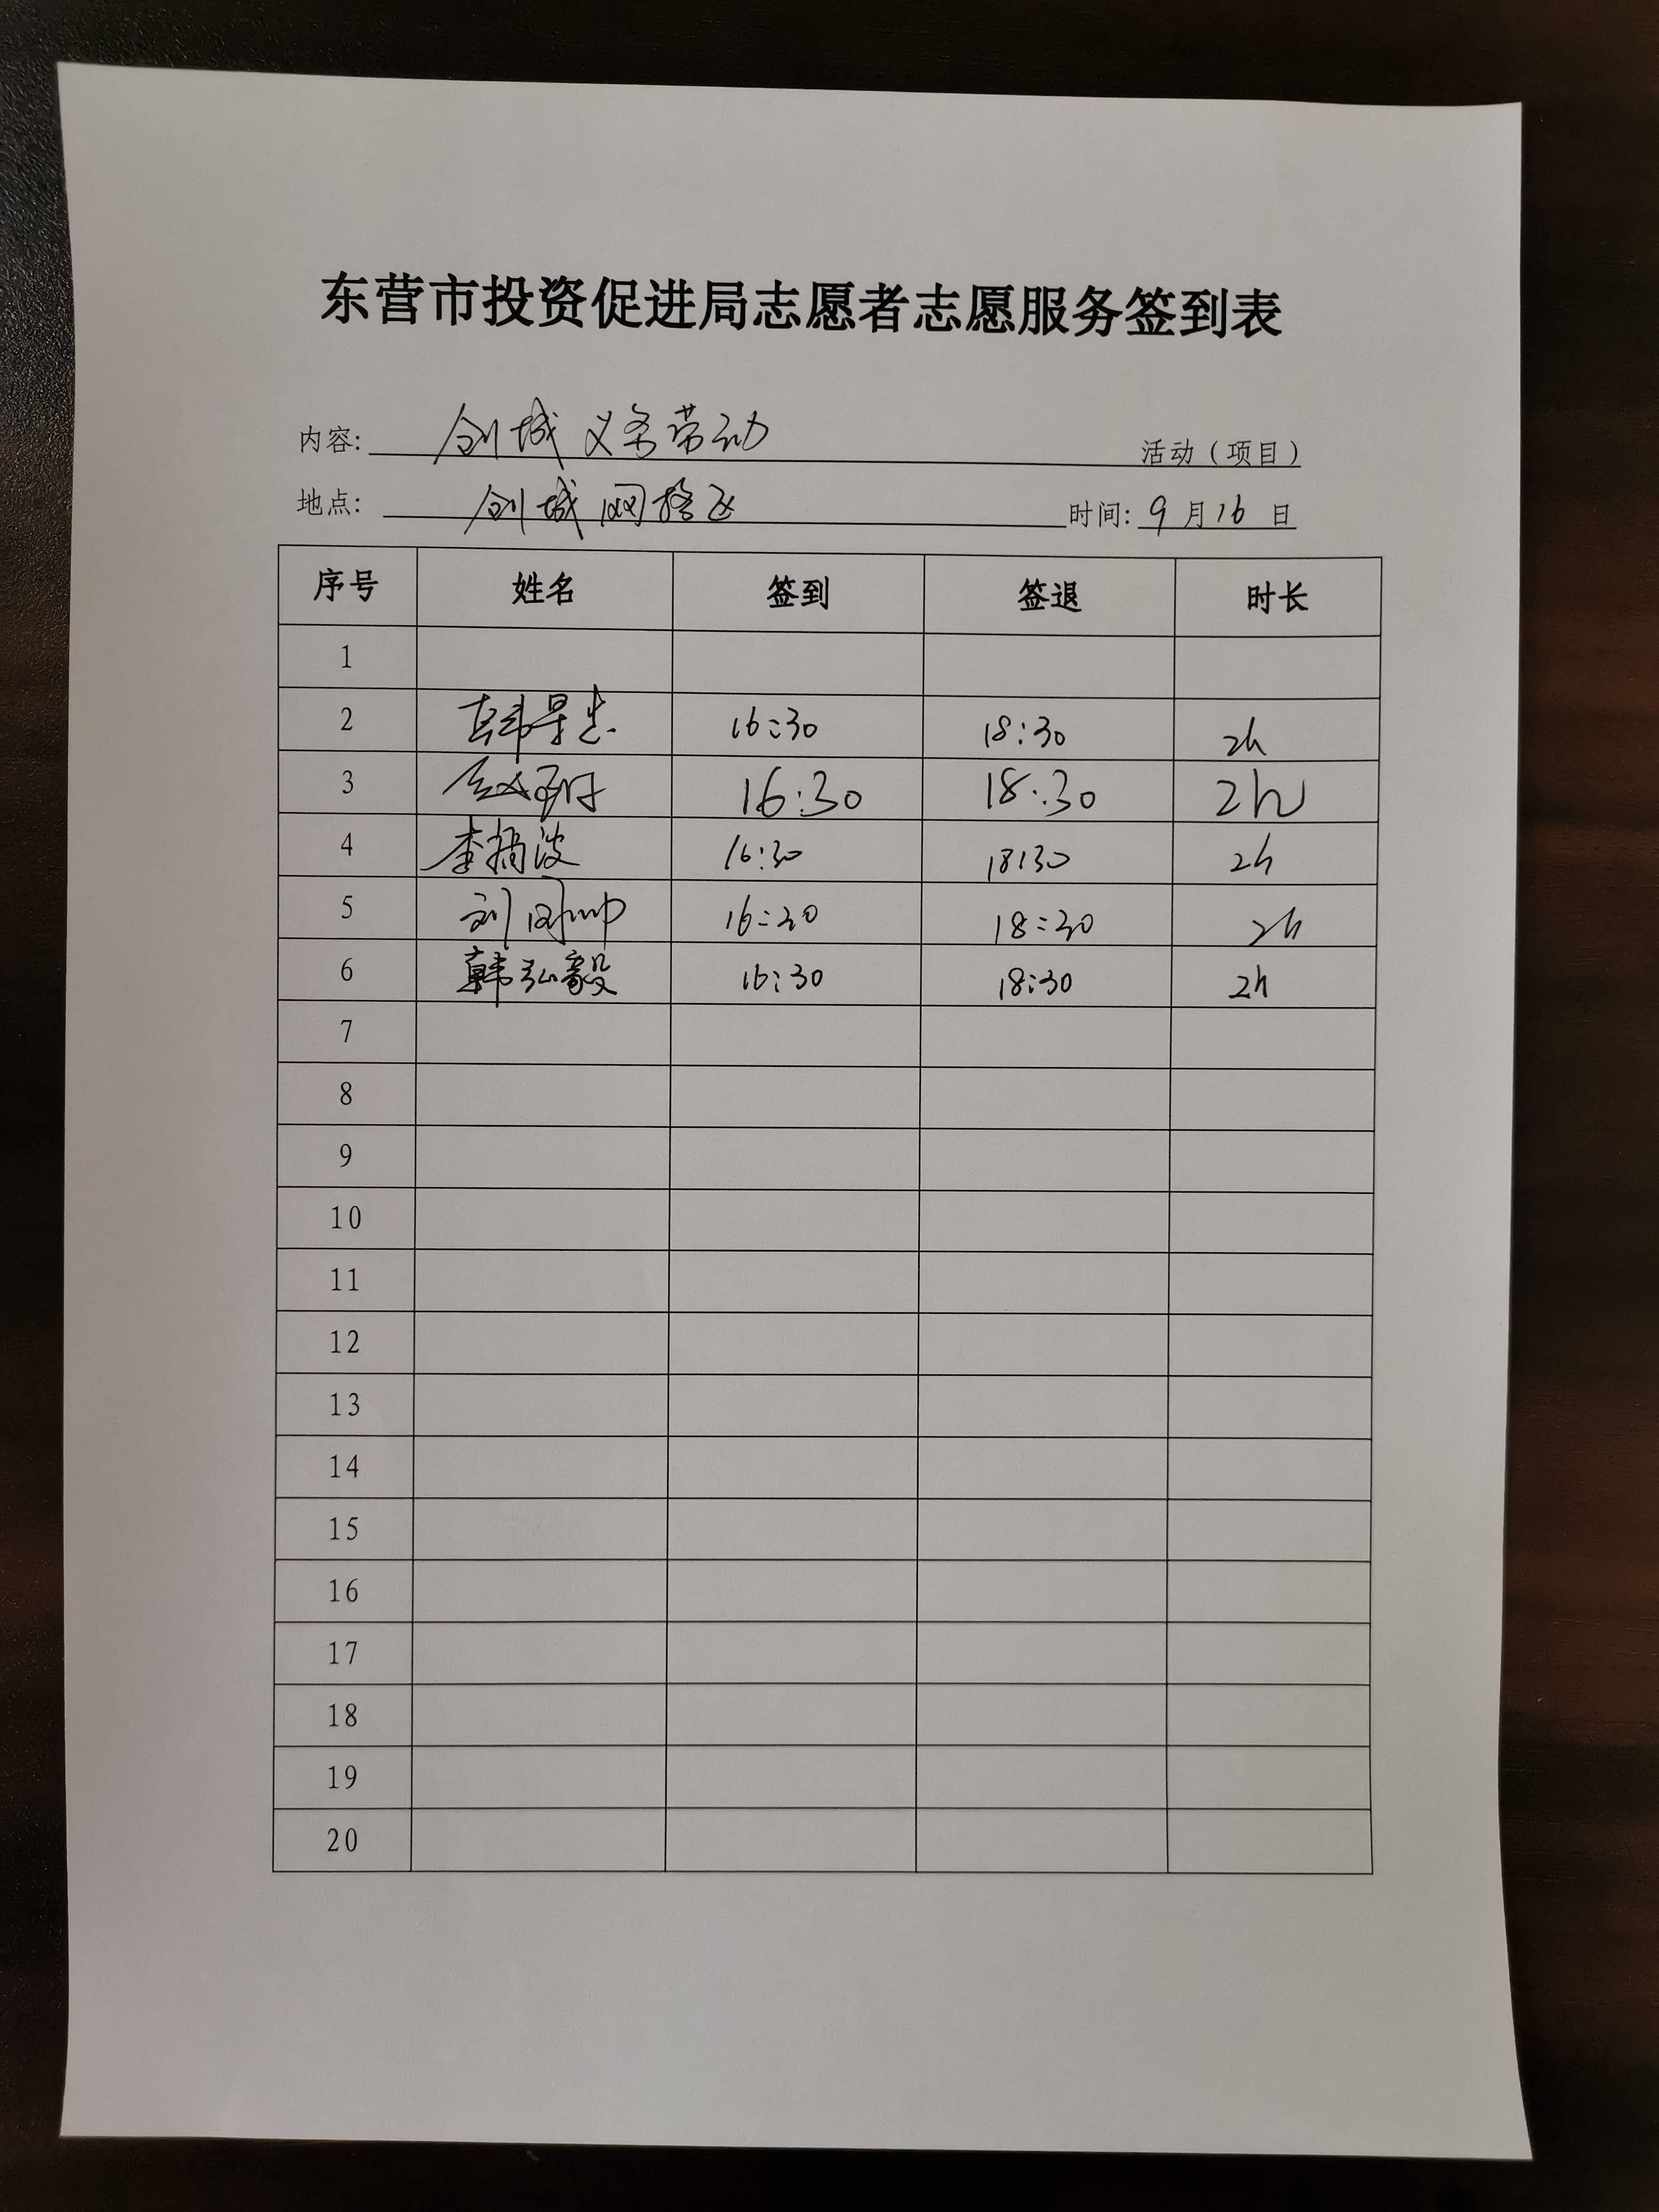 东营市投资促进局志愿者志愿服务签到表
内容: 创城义务劳动 活动（项目）
地点: 创城网格区 时间: 9月16日
序号 姓名 签到 签退 时长
1
2 16:30 18:30 2h
3 16:30 18:30 2h
4 李 波 16:30 18:30 2h
5 刘 帅 16:30 18:30 2h
6 韩弘毅 16:30 18:30 2h
7
8
9
10
11
12
13
14
15
16
17
18
19
20